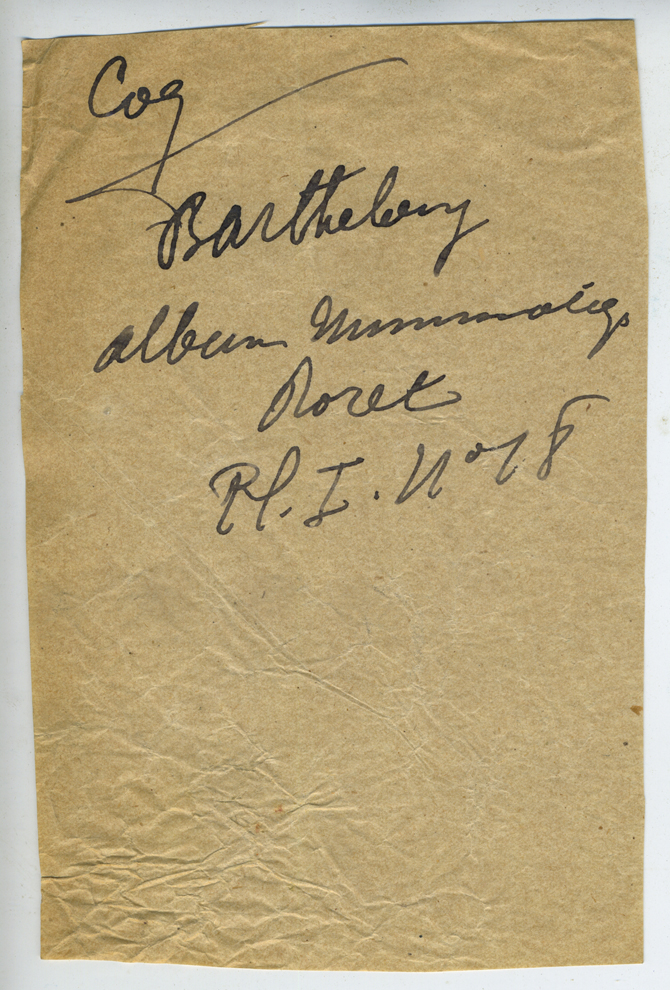 Coq
Barthelemy
album Numismatiq
Roret
Pl. I. No 18